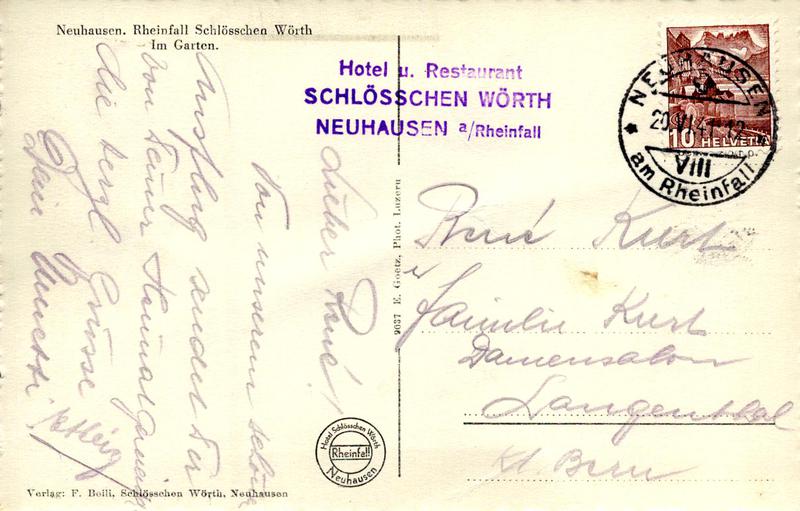 Neuhausen. Rheinfall Schlösschen Wörth
Im Garten.
Hotel u. Restaurant
SCHLÖSSCHEN WÖRTH
NEUHAUSEN a/Rheinfall
NEUHAUSEN
20.VI.41.12
VIII
am Rheinfall
10 HELVETIA
Lieber René!
Von unserem schönen
Ausflug sendet Dir
von Deiner Heimat
die herzl. Grüsse
Dein
9037 E. Goetz, Phot. Luzern
René Kurt
u
Familie Kurt
Damensalon
Langenthal
Kt. Bern
Hotel Schlösschen Wörth
Rheinfall
Neuhausen
Verlag: F. Beili, Schlösschen Wörth, Neuhausen